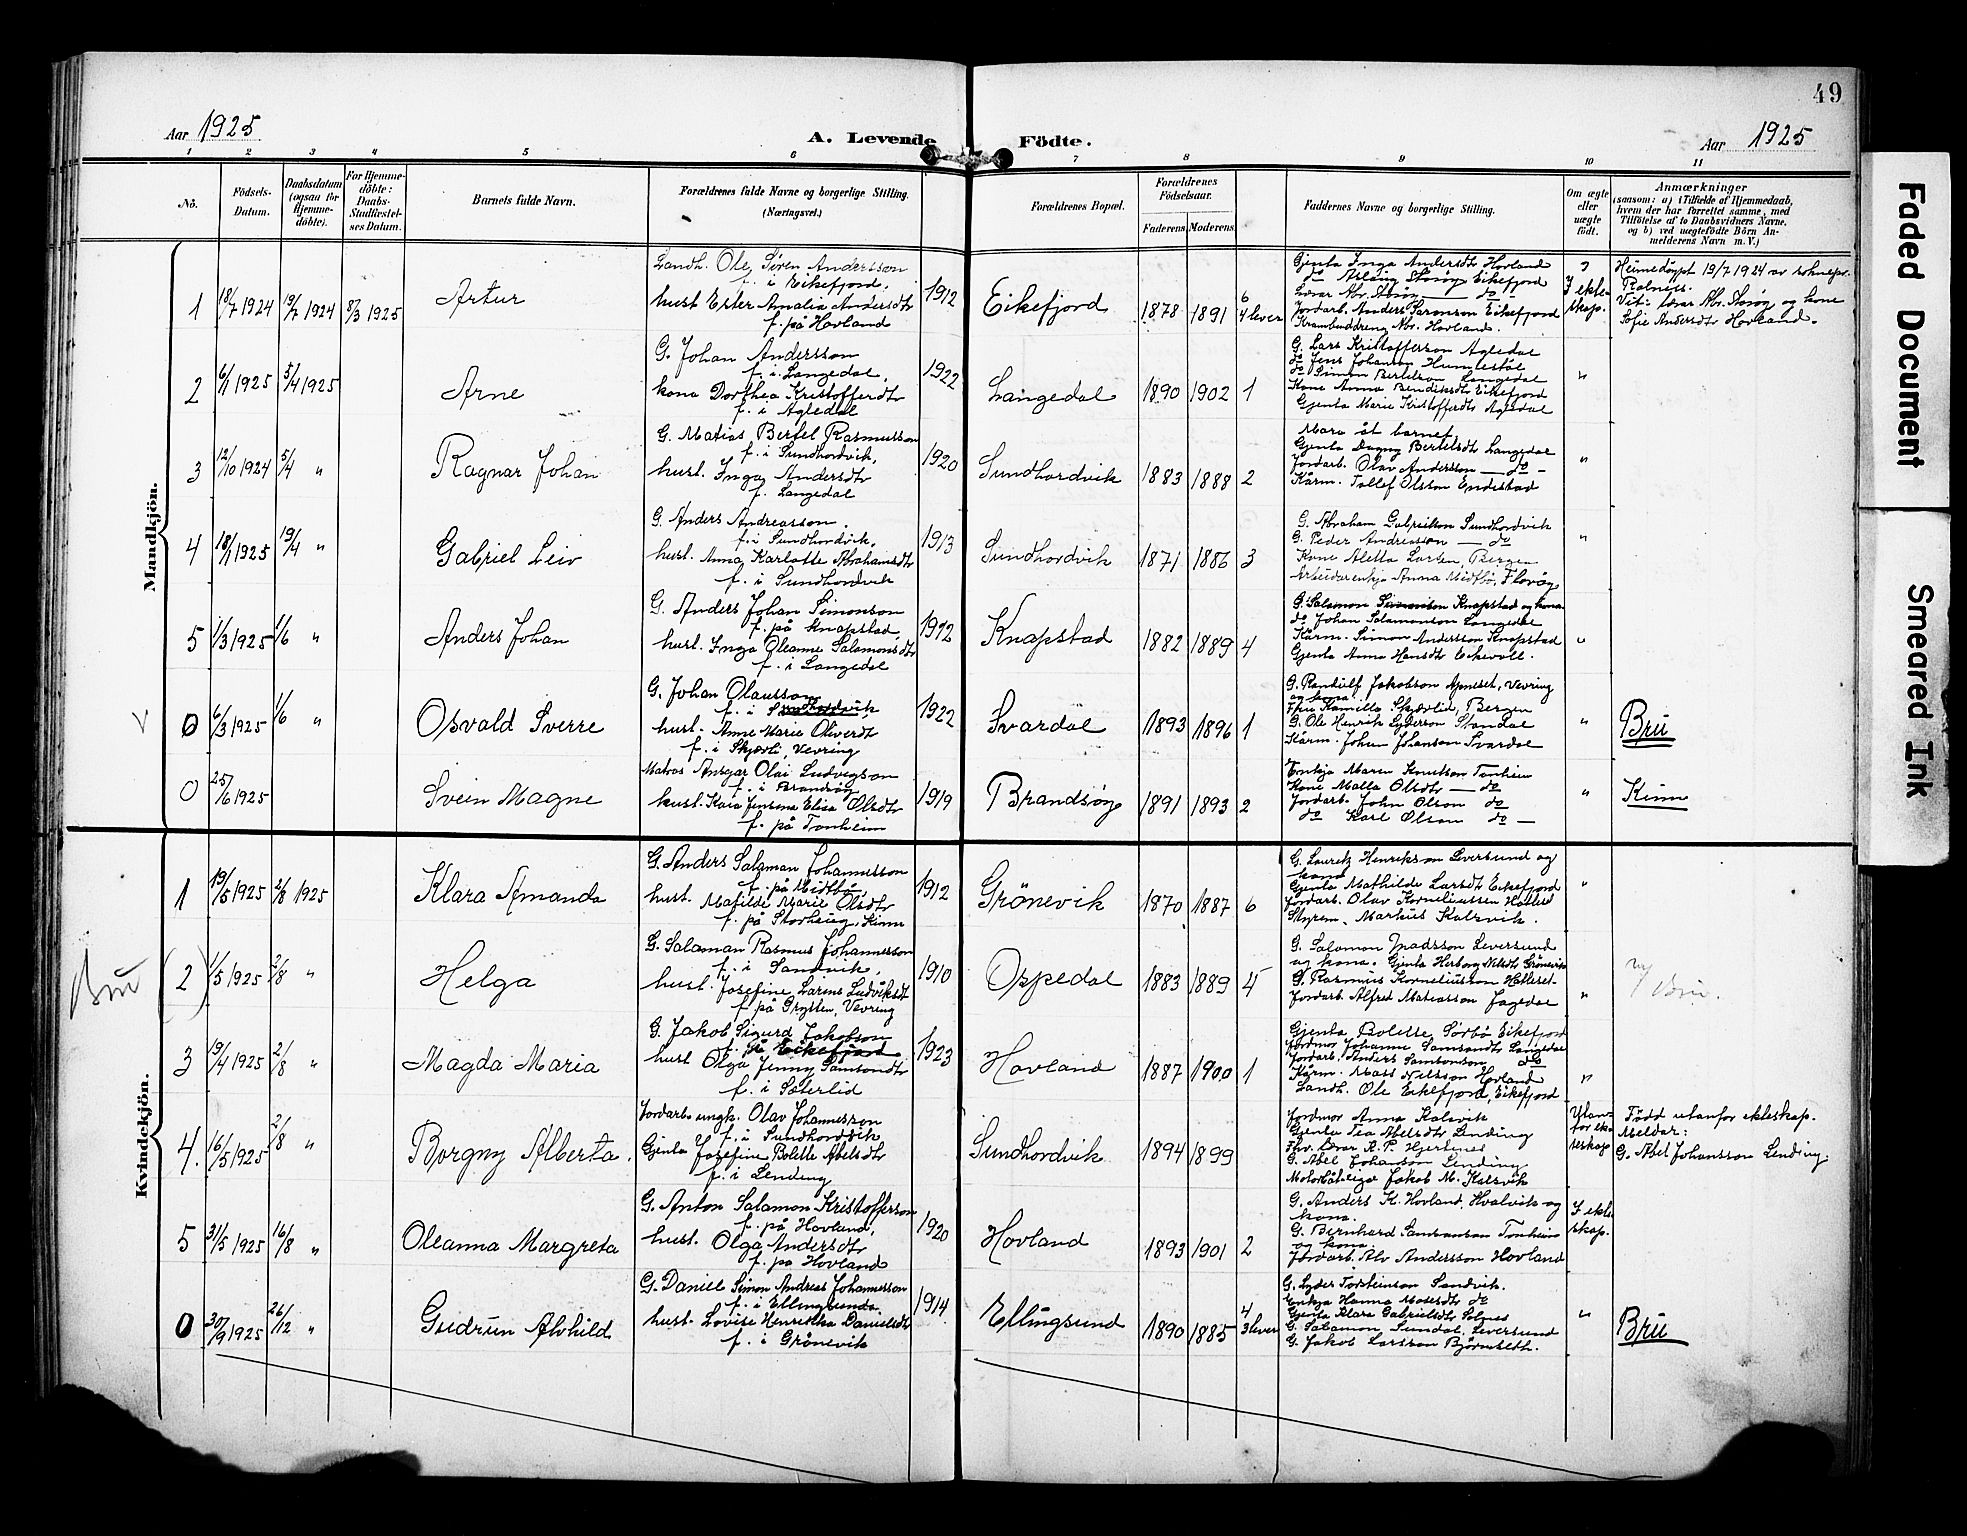 49
Aar 1925
A. Levende Födte.
Aar 1925
1 2 3 4 5 6 7 8 9 10 11
No.
Födsels-
Datum.
Daabsdatum
(ogsaa for
Hjemme-
döbte).
For Hjemme-
döbte:
Daabs-
Stadfæstel-
ses Datum.
Barnets fulde Navn.
Forældrenes fulde Navne og borgerlige Stilling.
(Næringsvei.)
Forældrenes Bopæl.
Forældrenes
Födselsaar.
Faderens Moderens
Faddernes Navne og borgerlige Stilling.
Om ægte
eller
uægte
födt.
Anmærkninger
(saasom: a) i Tilfælde af Hjemmedaab,
hvem der har forrettet samme, med
Tilföielse af to Daabsvidners Navne,
og b) ved uægtefödte Börn An-
melderens Navn m. V.)
Mandkjön.
1 18/7 1924 19/7 1924 8/3 1925 Artur
Landh. Ole Søren Andersson
f. i Eikefjord,
hust Ester Amalia Andersdtr
f. på Hovland
1912 Eikefjord 1878 1891 6
4 lever
Gjenta Inga Andersdtr Hovland
do Aslaug Storøg Eikefjord
Lærar Abr. Storøg — do -
Jordarb. Anders Sørenson Eikefjord
Krambuddreng Abr. Hovland.
I ekte-
skap.
Heimedøypt 19/7 1924 av soknepr.
Vit: Lærar Abr. Storøg og kone
Sofie Andersdtr Hovland.
2 6/1 1925 5/4 1925 Arne
G. Johan Andersson
f. i Langedal,
kona Dorthea Kristofferdtr
f. i Agledal
1922 Langedal 1890 1902 1
G. Lars Kristofferson Agledal
do Jens Johanson Humlestøl
do Simon Bertelson Langedal
Kone Anna Bendiksdtr Eikefjord
Gjenta Marie Kristofferdtr Agledal
"
3 12/10 1924 5/4 " Ragnar Johan
G. Matias Bertel Rasmusson
f. i Sundhordvik,
hust. Inga Andersdtr
f. Langedal
1920 Sundhordvik 1883 1888 2
Mora åt barnet
Gjenta Dagny Bertelsdtr Langedal
Jordarb. Olav Andersson — do -
Kårm. Tollef Olsson Endestad
"
4 18/1 1925 19/4 " Gabriel Leiv
G. Anders Andreasson,
f. i Sundhordvik,
hust. Anna Karlotte Abrahamsdtr
f. i Sundhordvik
1913 Sundhordvik 1871 1886 3
G. Abraham Gabrielson Sundhordvik
G. Peder Andreasson — do
Kone Aletta Larsen, Bergen
Arbeidarenkja Anna Midtbø, Florøy
"
5 1/3 1925 1/6 " Anders Johan
G. Anders Johan Simonson
f. på Knapstad,
hust. Inga Oleanne Salamonsdtr
f. i Langedal
1912 Knapstad 1882 1889 4
G. Salamon Simonson Knapstad og kona
do Johan Salamonson Langedal
Kårm. Simon Andersson Knapstad
Gjenta Anna Hansdtr Eikevoll.
"
V 0 6/3 1925 1/6 " Osvald Sverre
G. Johan Olausson
f. i Sundhordvik
hust. Anne Marie Oliverdtr
f. i Skjærli Vevring
1922 Svardal 1893 1896 1
G. Rankulf Jakobson Apneset, Vevring
og kona.
Fru Kamilla Skjærlid, Bergen
G. Ole Henrik Lyderson Standal
Kårm. Johan Johanson Svardal
"
Bru
0 25/6 1925 Svein Magne
Matros Ansgar Olai Ludvigson
f. i Brandsøy
hust. Kaia Jensena Elisa Olsdtr
f. på Tonheim
1919 Brandsøy 1891 1893 2
Enkja Maren Knutson Tonheim
Kone Malla Olsdtr — do
Jordarb. John Olson do
do Karl Olson do —
"
Kinn
Kvindekjön.
1 19/5 1925 2/8 1925 Klara Amanda
G. Anders Salamon Johannesson
f. på Midtbø,
hust. Matilde Marie Olsdtr
f. på Storhaug, Kinn
1912 Grönevik 1870 1887 6
G. Lauritz Henrikson Leversund og
kona
Gjenta Mathilde Larsdt Eikefjord
Jordarb. Olav Korneliussen Hatleset
Styrem. Markus Kalsvik.
"
Bru (2) 1/5 1925 2/8 " Helga
G. Salaman Rasmus Johannesson
f. i Sandvik,
hust. Josefine Larens Ludviksdt
f. på Grytten, Vevring
1910 Oppedal 1883 1889 4
G. Salomon Madsson Leversund
og kona. Gjenta Herborg Nilsdtr Grönevik
G. Rasmus Korneliusson Hatleset-
Jordarb. Alfred Matiasson Fagedal
"
Bru.
3 19/4 1925 2/8 " Magda Maria
G. Jakob Sigurd Jakobson
f. på Eikefjord
hust Olga Jenny Samsondtr
f. i Sæterlid
1923 Hovland 1887 1900 1
Gjenta Bolette Sørbø Eikefjord
Jordmor Johanne Samsondtr Langedal
Jordarb. Anders Samsonson do
Kårm. Mass Nilsson Hovland
Landh. Ole Eikefjord, Eikefjord
"
4. 16/5 1925 2/8 " Borgny Alberta.
Jordarb. ungk. Olav Johannesson
f. i Sundhordvik
Gjenta Josefine Bolette Abelsdtr
f. i Lending
Sundhordvik 1894 1899
Jordmor Anna Kalsvik
Gjenta Tea Abelsdtr Lending
Fhv. Lærar R. P. Hjertenes
G. Abel Johanson Lending
Motorbåteigar Jakob M. Kalsvik
Utan-
for ek-
teskap
Född utanfor ekteskap.
Meldar:
G. Abel Johansson Lending.
5 31/5 1925 16/8 " Oleanna Margreta
G. Anton Salamon Kristofferson
f. på Hovland,
hust. Olga Andersdtr
f. på Hovland
1920 Hovland 1893 1901 2
G. Anders K. Hovland, Hvalvik og
kona.
G. Bernhard Samsonson Tonheim
og kona.
Jordarb. Alv Andersson Hovland
I ekte-
skap.
0 30/9 1925 26/12 " Gudrun Alvhild
G. Daniel Simon Andreas Johannesson
f. i Ellingsund.
hust. Lovise Henrikka Danielsdtr
f. i Grönevik
1914. Ellingsund 1890 1885 4
3 lever
G. Lyder Torsteinson Sandvik.
Enkja Hanna Mosesdtr do
Gjenta Klara Gabrielsdtr Solnes
G. Salamon Sundal, Leversund
G. Jakob Larsson Björnset.
"
Bru
Faded Document
Smeared Ink